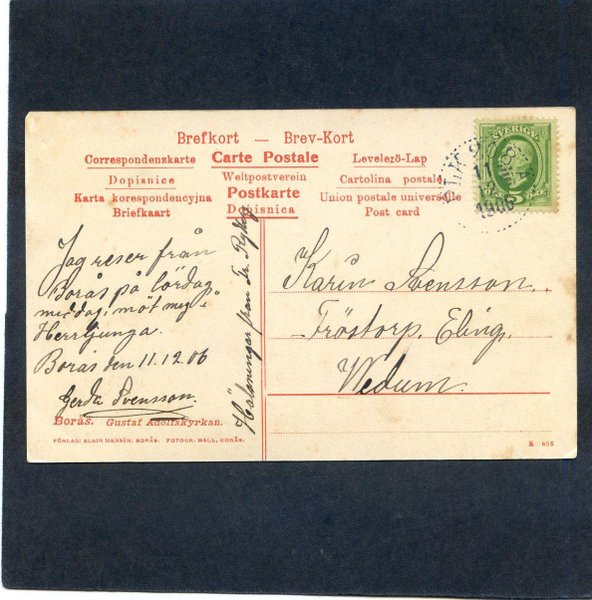 Brefkort — Brev-Kort
Correspondenzkarte
Carte Postale
Levelező-Lap
Dopisnice
Weltpostverein
Cartolina postale
Karta korespondencyjna
Postkarte
Union postale universelle
Briefkaart
Dopisnica
Post card
SVERIGE
11
12
1906
Jag reser från
Borås på lördag
middag, möt mej i
Herrljunga.
Borås den 11.12.06
Gerda Svensson.
Hälsningar från Fr. Rydberg
Karin Svensson.
Fröstorp, Eling,
Wedum.
Borås. Gustaf Adolfskyrkan.
FÖRLAG: ALBIN HANSÉN, BORÅS. FOTOGR. HALL, BORÅS.